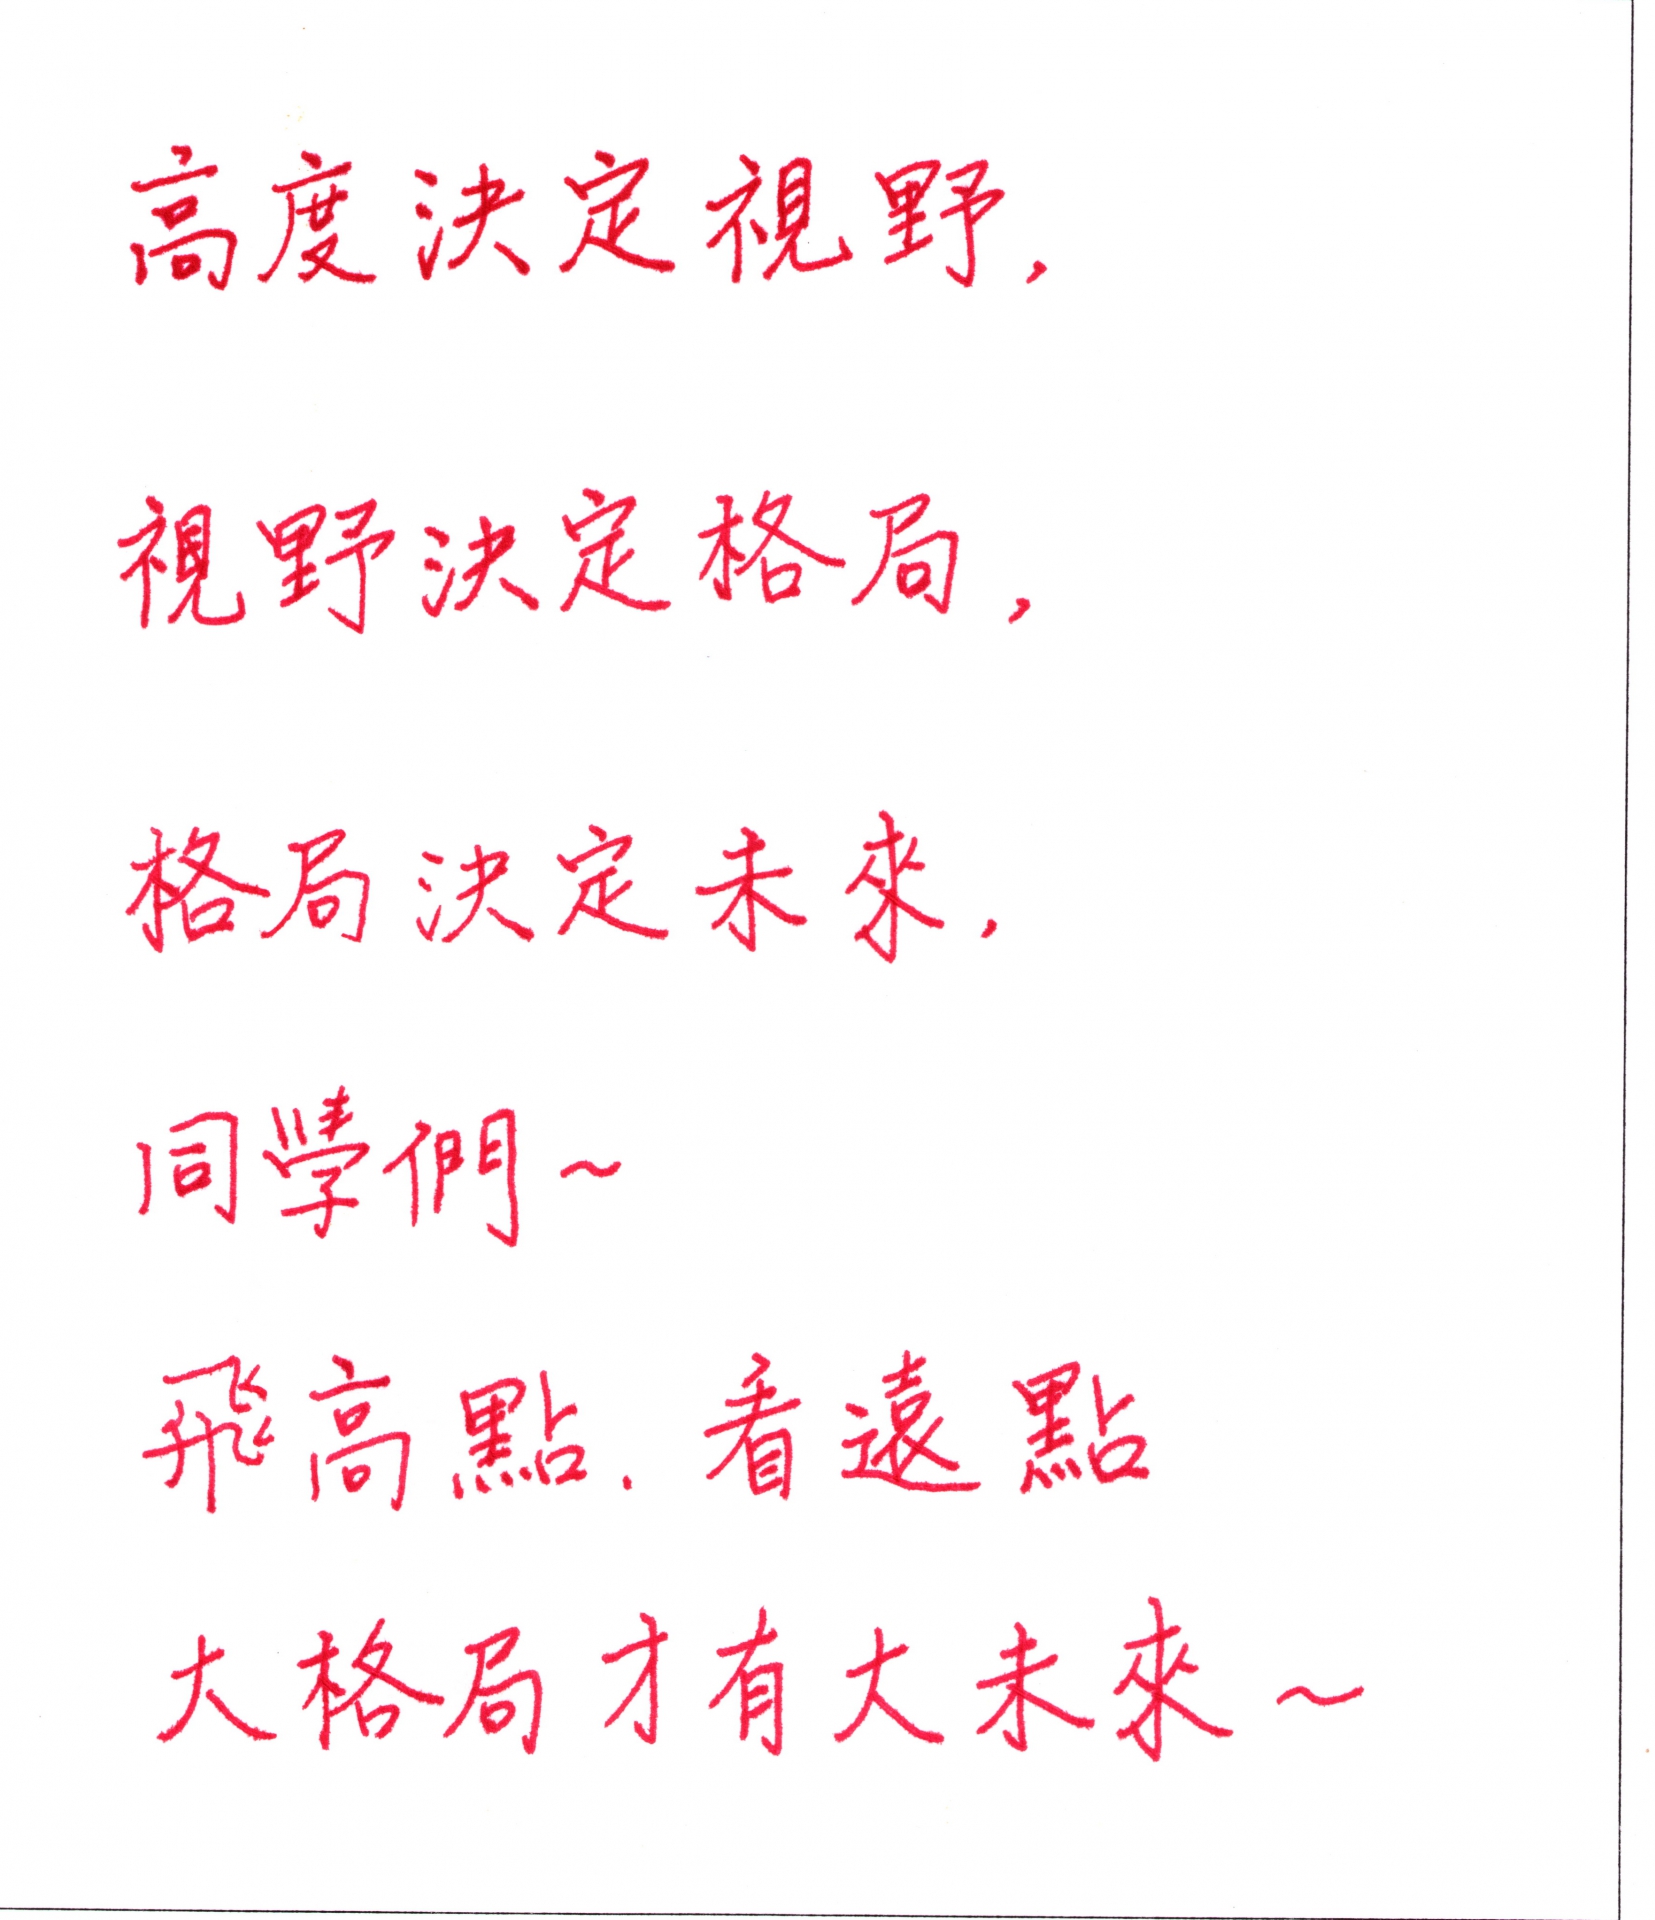 高度決定視野,
視野決定格局,
格局決定未來,
同學們~
飛高點.看遠點
大格局才有大未來~